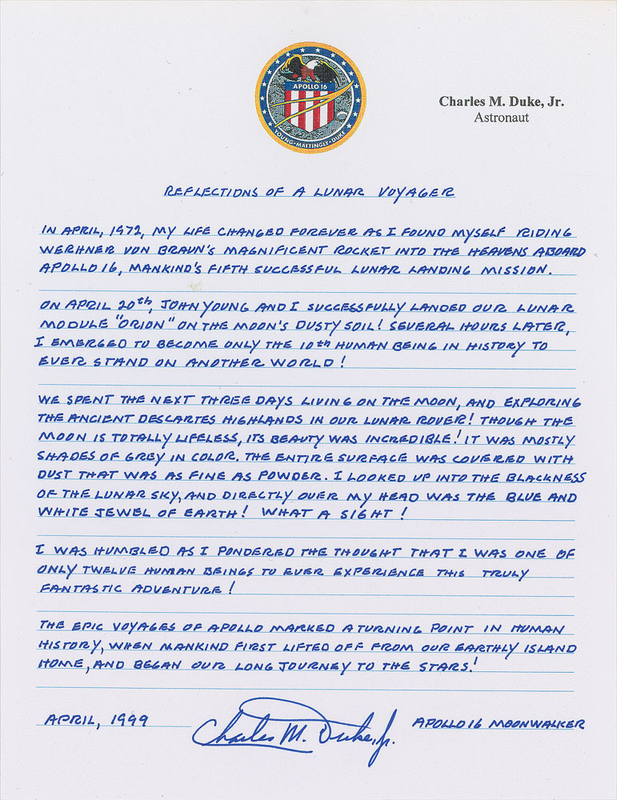 APOLLO 16
YOUNG • MATTINGLY • DUKE
Charles M. Duke, Jr.
Astronaut
REFLECTIONS OF A LUNAR VOYAGER
IN APRIL, 1972, MY LIFE CHANGED FOREVER AS I FOUND MYSELF RIDING
WERHNER VON BRAUN'S MAGNIFICENT ROCKET INTO THE HEAVENS ABOARD
APOLLO 16, MANKIND'S FIFTH SUCCESSFUL LUNAR LANDING MISSION.
ON APRIL 20th, JOHN YOUNG AND I SUCCESSFULLY LANDED OUR LUNAR
MODULE "ORION" ON THE MOON'S DUSTY SOIL! SEVERAL HOURS LATER,
I EMERGED TO BECOME ONLY THE 10th HUMAN BEING IN HISTORY TO
EVER STAND ON ANOTHER WORLD!
WE SPENT THE NEXT THREE DAYS LIVING ON THE MOON, AND EXPLORING
THE ANCIENT DESCARTES HIGHLANDS IN OUR LUNAR ROVER! THOUGH THE
MOON IS TOTALLY LIFELESS, ITS BEAUTY WAS INCREDIBLE! IT WAS MOSTLY
SHADES OF GREY IN COLOR. THE ENTIRE SURFACE WAS COVERED WITH
DUST THAT WAS AS FINE AS POWDER. I LOOKED UP INTO THE BLACKNESS
OF THE LUNAR SKY, AND DIRECTLY OVER MY HEAD WAS THE BLUE AND
WHITE JEWEL OF EARTH! WHAT A SIGHT!
I WAS HUMBLED AS I PONDERED THE THOUGHT THAT I WAS ONE OF
ONLY TWELVE HUMAN BEINGS TO EVER EXPERIENCE THIS TRULY
FANTASTIC ADVENTURE!
THE EPIC VOYAGES OF APOLLO MARKED A TURNING POINT IN HUMAN
HISTORY, WHEN MANKIND FIRST LIFTED OFF FROM OUR EARTHLY ISLAND
HOME, AND BEGAN OUR LONG JOURNEY TO THE STARS!
APRIL, 1999 Charles M. Duke, Jr. APOLLO 16 MOONWALKER